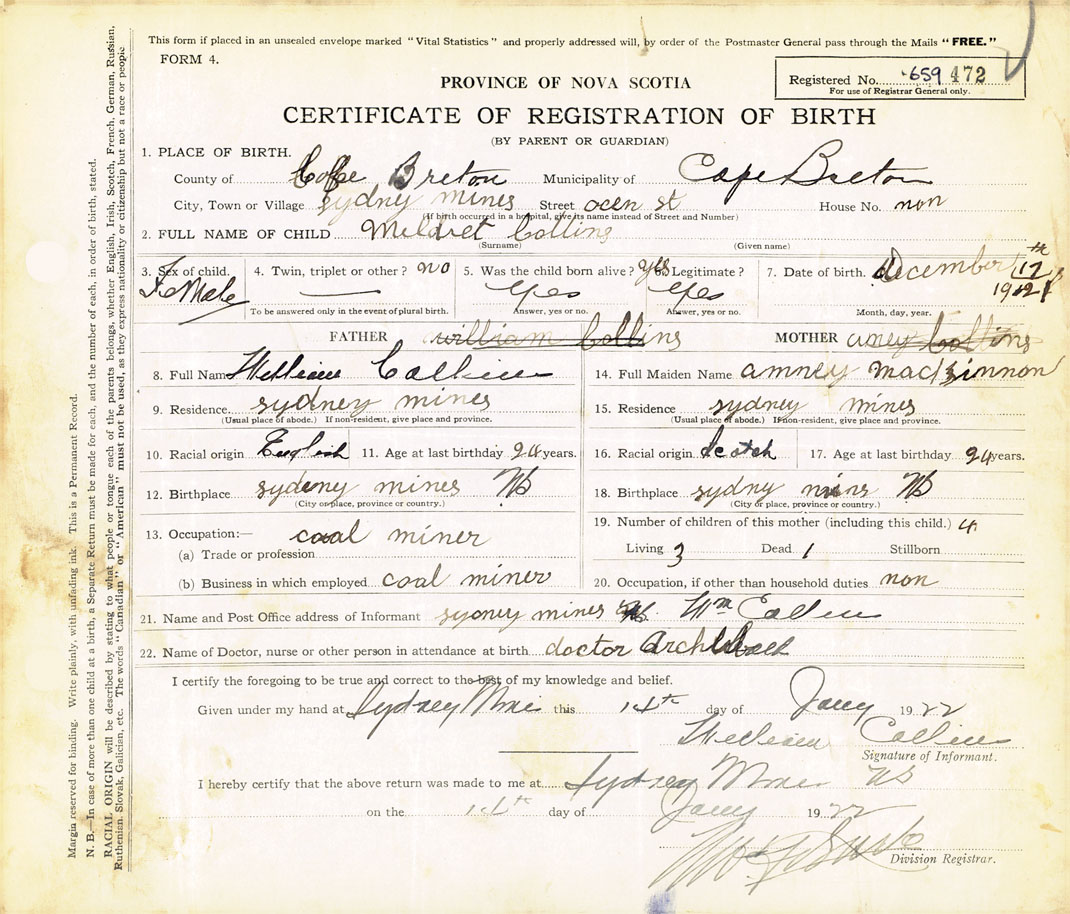 This form if placed in an unsealed envelope marked "Vital Statistics" and properly addressed will, by order of the Postmaster General pass through the Mails "FREE."
FORM 4.
PROVINCE OF NOVA SCOTIA
Registered No. 659 472
For use of Registrar General only.
CERTIFICATE OF REGISTRATION OF BIRTH
(BY PARENT OR GUARDIAN)
1. PLACE OF BIRTH.
County of Cape Breton Municipality of Cape Breton
City, Town or Village sydney mines Street ocen st House No. non
(If birth occurred in a hospital, give its name instead of Street and Number)
2. FULL NAME OF CHILD Meldret Collins
(Surname) (Given name)
3. Sex of child. 4. Twin, triplet or other? no 5. Was the child born alive? yes Legitimate? 7. Date of birth. december 17th
FeMale Yes Yes 1921
To be answered only in the event of plural birth. Answer, yes or no. Answer, yes or no. Month, day, year.
FATHER william Collins MOTHER amey Collins
8. Full Name William Collins 14. Full Maiden Name amney mackinnon
9. Residence sydney mines 15. Residence sydney mines
(Usual place of abode.) If non-resident, give place and province. (Usual place of abode.) If non-resident, give place and province.
10. Racial origin English 11. Age at last birthday 24 years. 16. Racial origin Scotch 17. Age at last birthday 24 years.
12. Birthplace sydeny mines NS 18. Birthplace sydny mins NS
(City or place, province or country.) (City or place, province or country.)
13. Occupation:— coal miner 19. Number of children of this mother (including this child.) 4
(a) Trade or profession Living 3 Dead 1 Stillborn
(b) Business in which employed coal miner 20. Occupation, if other than household duties non
21. Name and Post Office address of Informant sydney mines NS. Wm Collins
22. Name of Doctor, nurse or other person in attendance at birth doctor
I certify the foregoing to be true and correct to the best of my knowledge and belief.
Given under my hand at Sydney Mines this 14th day of Jany 1922
William Collins
Signature of Informant.
I hereby certify that the above return was made to me at Sydney Mines NS
on the 14th day of Jany 1922
Division Registrar.
Margin reserved for binding. Write plainly, with unfading ink. This is a Permanent Record.
N. B.—In case of more than one child at a birth, a Separate Return must be made for each, and the number of each, in order of birth, stated.
RACIAL ORIGIN will be described by stating to what people or tongue each of the parents belongs, whether English, Irish, Scotch, French, German, Russian,
Ruthenian, Slovak, Galician, etc. The words "Canadian" or "American" must not be used, as they express nationality or citizenship but not a race or people